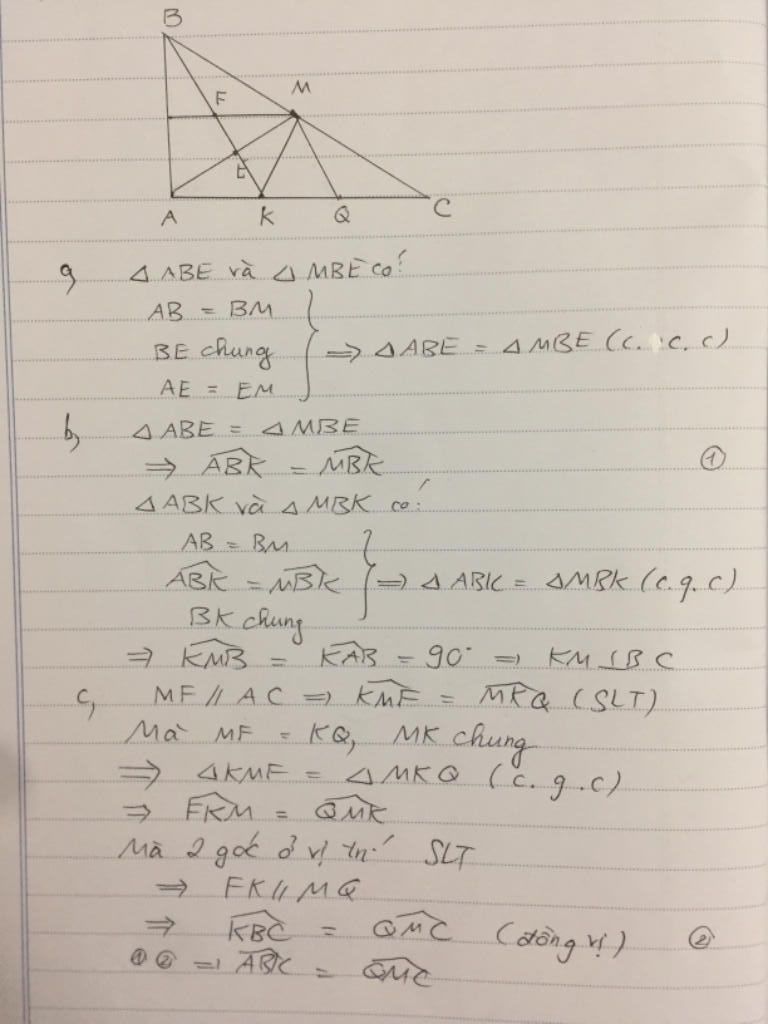 B
F
M
E
A
K
Q
C
a, △ABE và △MBE có:
AB = BM
BE chung ⇒ △ABE = △MBE (c.c.c)
AE = EM
b, △ABE = △MBE
⇒ \widehat{ABK} = \widehat{MBK} ①
△ABK và △MBK có:
AB = BM
\widehat{ABK} = \widehat{MBK} ⇒ △ABK = △MBK (c.g.c)
BK chung
⇒ \widehat{KMB} = \widehat{KAB} = 90° ⇒ KM ⊥ BC
c, MF // AC ⇒ \widehat{KMF} = \widehat{MKQ} (SLT)
Mà MF = KQ, MK chung
⇒ △KMF = △MKQ (c.g.c)
⇒ \widehat{FKM} = \widehat{QMK}
Mà 2 góc ở vị trí SLT
⇒ FK // MQ
⇒ \widehat{KBC} = \widehat{QMC} (đồng vị) ②
① ② ⇒ \widehat{ABK} = \widehat{QMC}